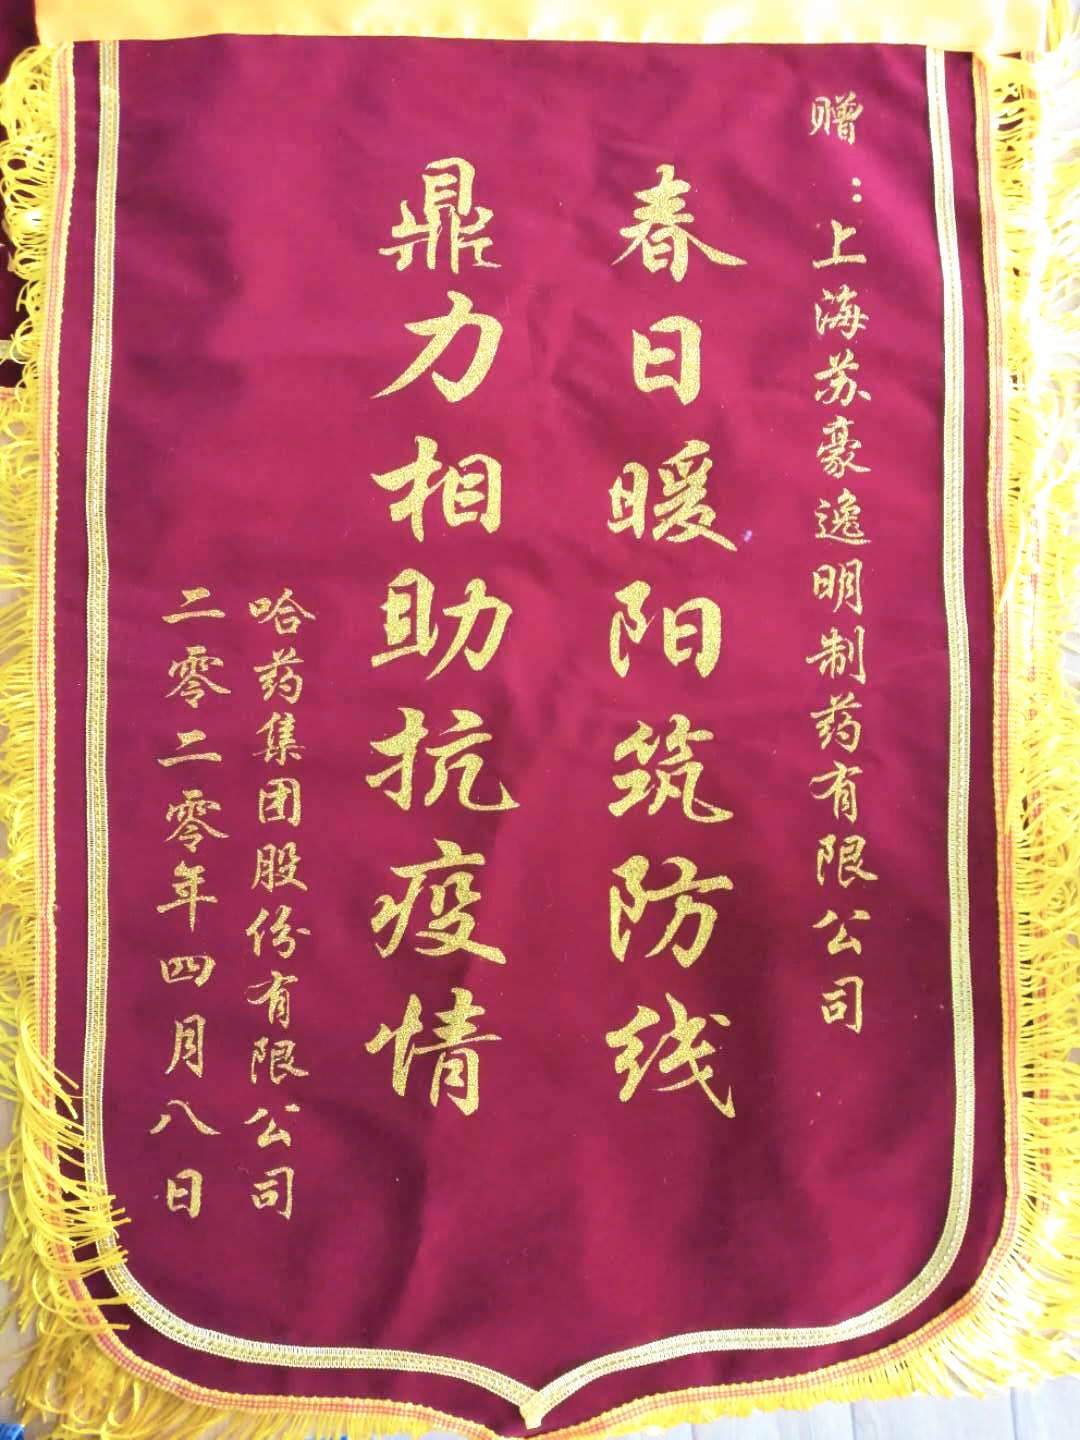 赠：上海苏豪逸明制药有限公司
春日暖阳筑防线
鼎力相助抗疫情
哈药集团股份有限公司
二零二零年四月八日